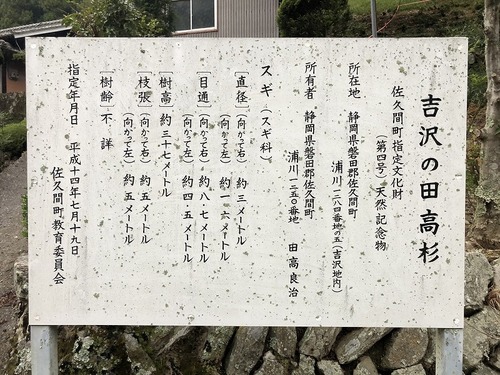 吉沢の田高杉
佐久間町指定文化財
(第四号) 天然記念物
所在地 静岡県磐田郡佐久間町
浦川一二八四番地の五(吉沢地内)
所有者 静岡県磐田郡佐久間町
浦川一二五〇番地 田高良治
スギ(スギ科)
〔直径〕(向かって右) 約三メートル
(向かって左) 約一・六メートル
〔目通〕(向かって右) 約八・七メートル
(向かって左) 約四・五メートル
樹高 約三十七メートル
〔枝張〕(向かって右) 約五メートル
(向かって左) 約五メートル
樹齢 不詳
指定年月日 平成十四年七月十九日
佐久間町教育委員会